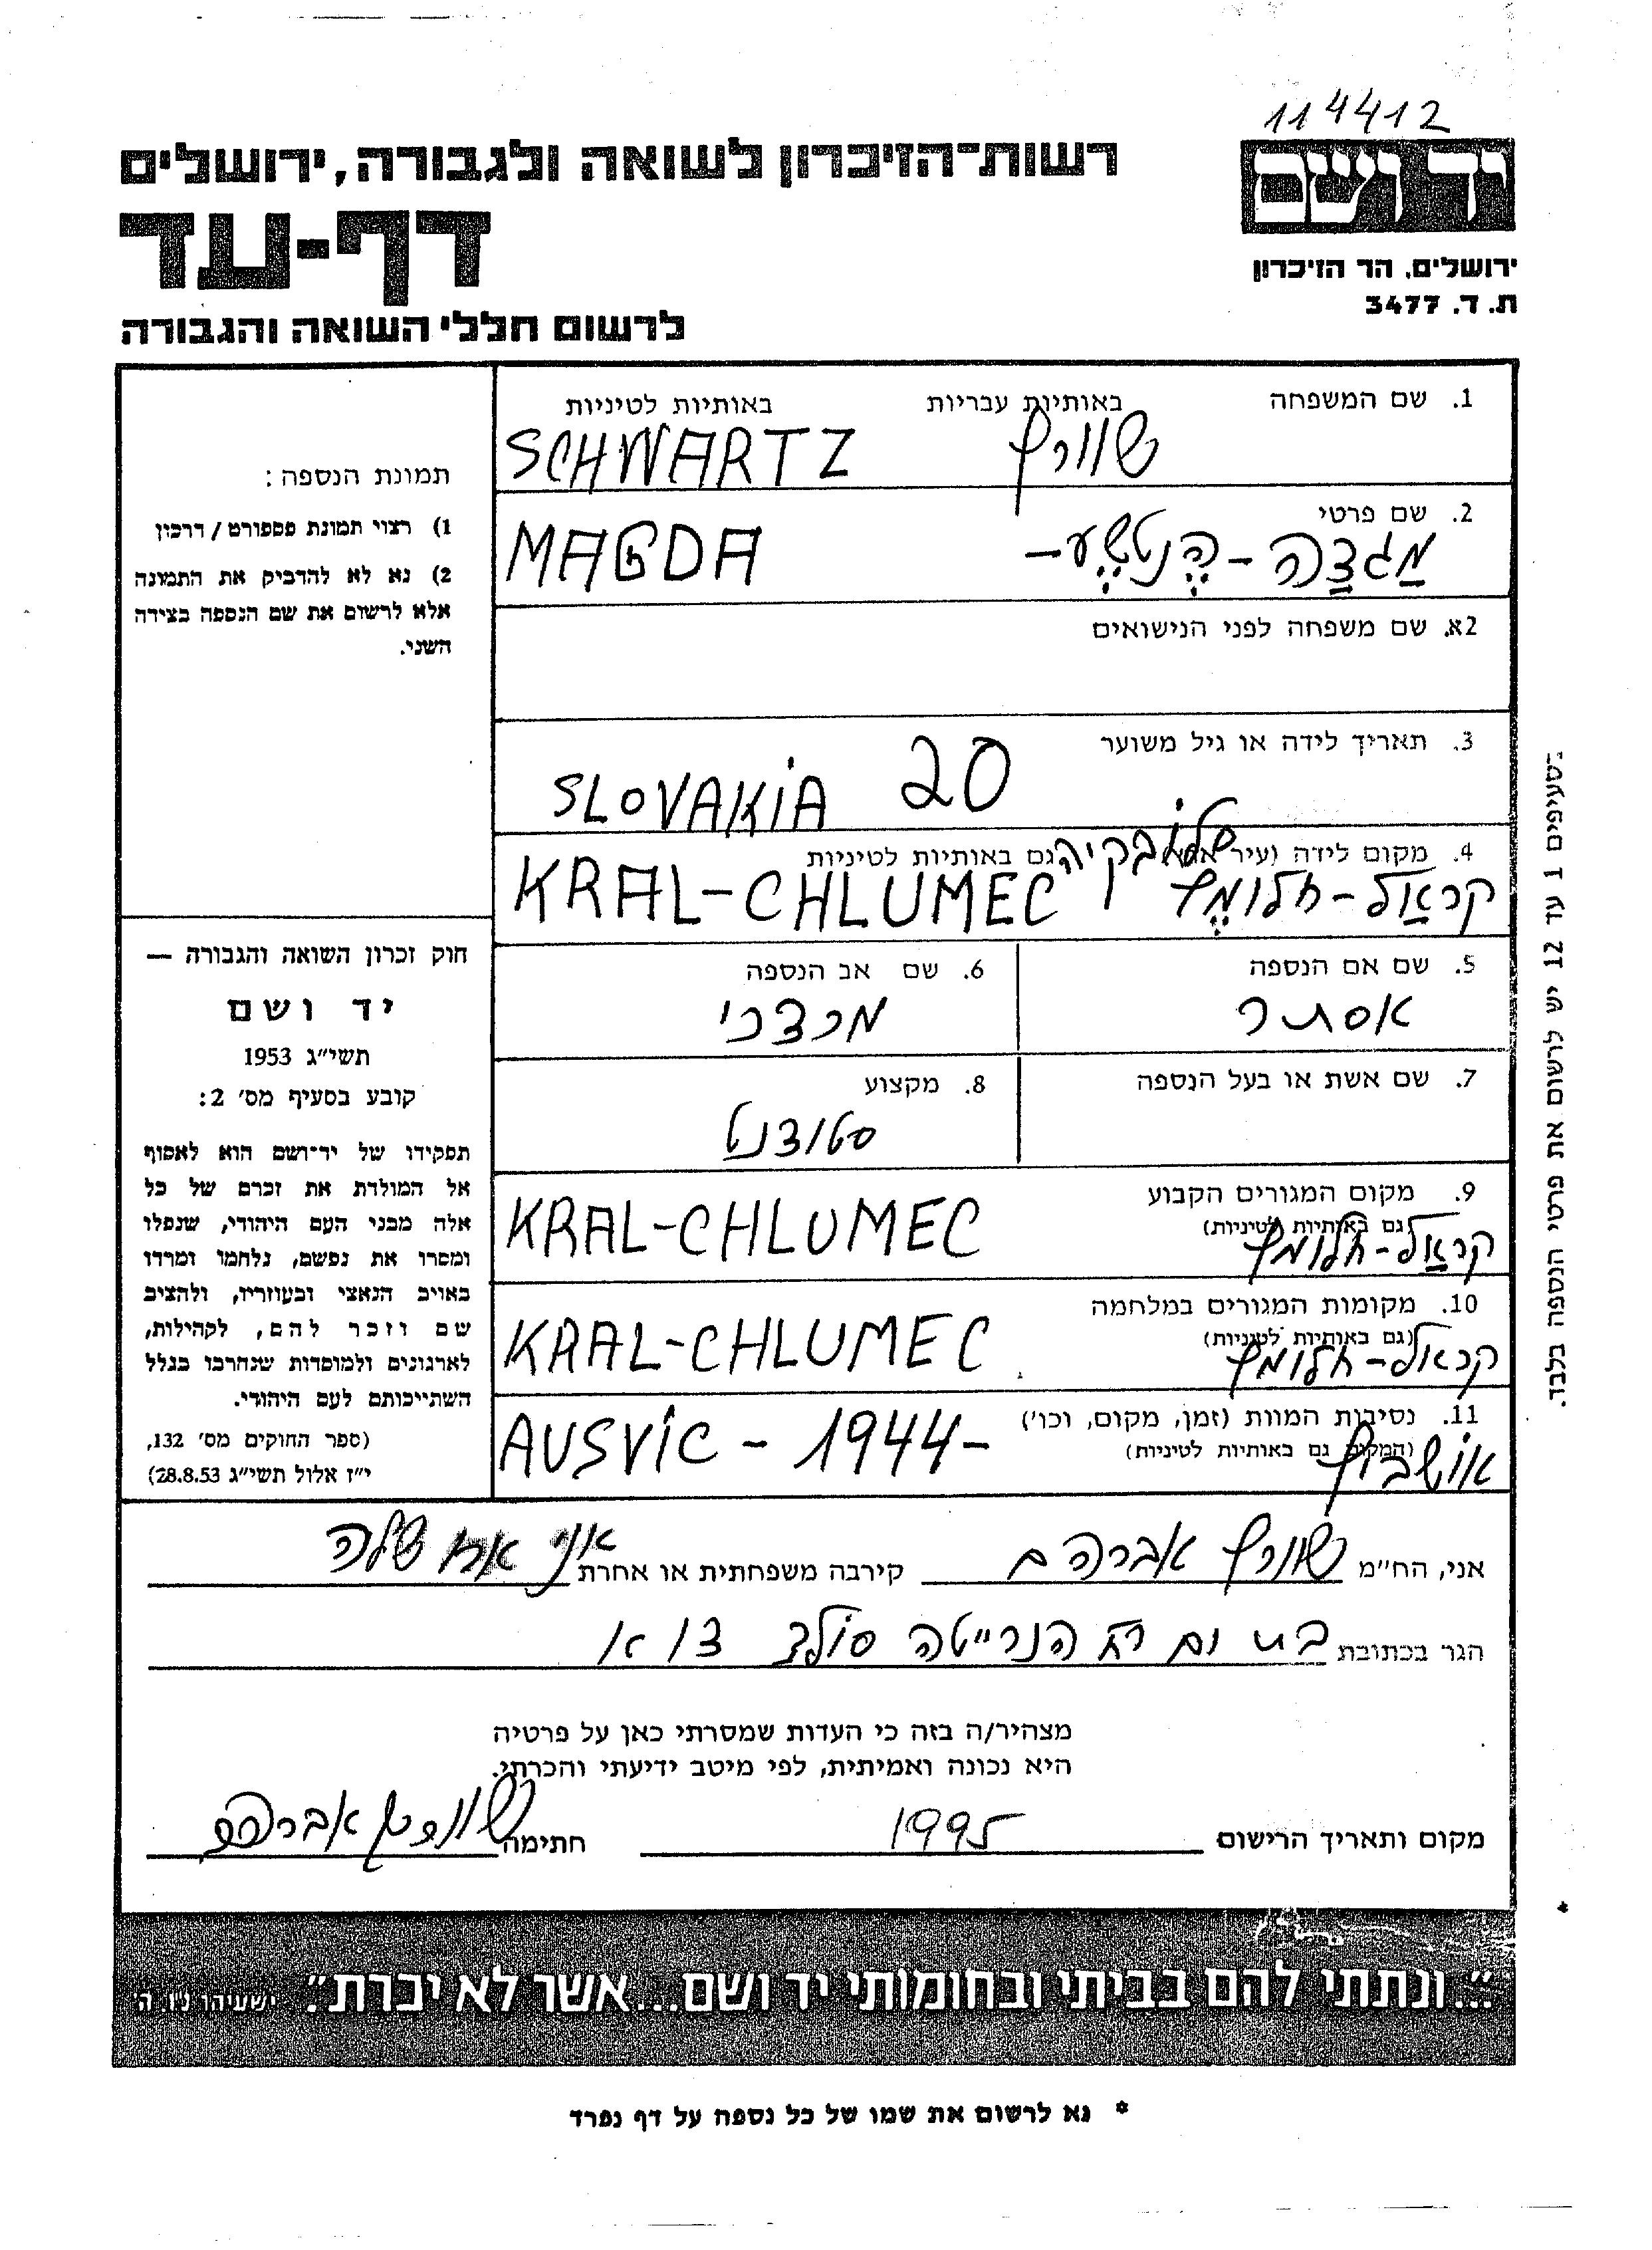 114412
יד ושם
ירושלים, הר הזיכרון
ת. ד. 3477
רשות-הזיכרון לשואה ולגבורה, ירושלים
דף-עד
לרשום חללי השואה והגבורה
1. שם המשפחה באותיות עבריות באותיות לטיניות
שוורץ SCHWARTZ
2. שם פרטי
מַגדַה - הֶנטשֶע - MAGDA
2א. שם משפחה לפני הנישואים
3. תאריך לידה או גיל משוער
20 SLOVAKIA
סלובקיה
4. מקום לידה גם באותיות לטיניות
קראַל - חלומֶץ KRAL-CHLUMEC
5. שם אם הנספה 6. שם אב הנספה
אסתר מרדכי
7. שם אשת או בעל הנספה 8. מקצוע
סטודנט
9. מקום המגורים הקבוע
(גם באותיות לטיניות)
קראַל - חלומץ KRAL-CHLUMEC
10. מקומות המגורים במלחמה
(גם באותיות לטיניות)
קראל - חלומץ KRAL-CHLUMEC
11. נסיבות המוות (זמן, מקום, וכו')
(המקום גם באותיות לטיניות)
אושביץ AUSVIC - 1944-
תמונת הנספה:
1) רצוי תמונת פספורט / דרכון
2) נא לא להדביק את התמונה
אלא לרשום את שם הנספה בצידה
השני.
חוק זכרון השואה והגבורה —
יד ושם
תשי"ג 1953
קובע בסעיף מס' 2:
תפקידו של יד-ושם הוא לאסוף
אל המולדת את זכרם של כל
אלה מבני העם היהודי, שנפלו
ומסרו את נפשם, נלחמו ומרדו
באויב הנאצי ובעוזריו, ולהציב
שם וזכר להם, לקהילות,
לארגונים ולמוסדות שנחרבו בגלל
השתייכותם לעם היהודי.
(ספר החוקים מס' 132,
י"ז אלול תשי"ג 28.8.53)
בסעיפים 1 עד 12 יש לרשום את פרטי הנספה בלבד.
אני, הח"מ שוורץ אברהם קירבה משפחתית או אחרת אני אח שלה
הגר בכתובת בת ים רח הנרייטה סולד
מצהיר/ה בזה כי העדות שמסרתי כאן על פרטיה
היא נכונה ואמיתית, לפי מיטב ידיעתי והכרתי.
מקום ותאריך הרישום 1995 חתימה שוורץ אברהם
"...ונתתי להם בביתי ובחומותי יד ושם... אשר לא יכרת". ישעיהו נ"ו, ה'
* נא לרשום את שמו של כל נספה על דף נפרד